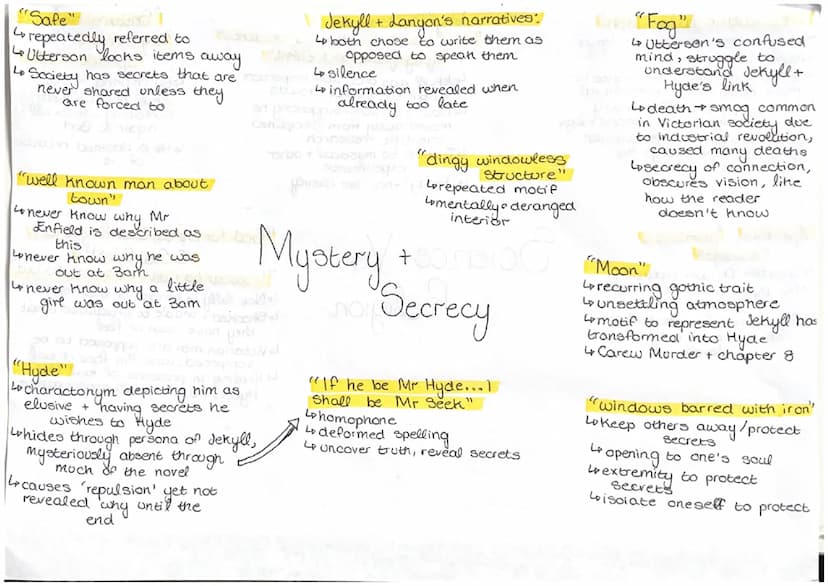 "Safe"
↳ repeatedly referred to
↳ Utterson locks items away
↳ Society has secrets that are
never shared unless they
are forced to
Jekyll + Lanyon's narratives:
↳ both chose to write them as
opposed to speak them
↳ silence
↳ information revealed when
already too late
"Fog"
↳ Utterson's confused
mind, struggle to
understand Jekyll +
Hyde's link
↳ death → smog common
in Victorian society due
to industrial revolution,
caused many deaths
↳ secrecy of connection,
obscures vision, like
how the reader
doesn't know
"well known man about
town"
↳ never know why Mr
Enfield is described as
this
↳ never know why he was
out at 3am
↳ never know why a little
girl was out at 3am
"dingy windowless
structure"
↳ repeated motif
↳ mentally deranged
interior
Mystery +
Secrecy
"Moon"
↳ recurring gothic trait
↳ unsettling atmosphere
↳ motif to represent Jekyll has
transformed into Hyde
↳ Carew Murder + chapter 8
"Hyde"
↳ charactonym depicting him as
elusive + having secrets he
wishes to Hyde
↳ hides through persona of Jekyll,
mysteriously absent through
much of the novel
↳ causes 'repulsion' yet not
revealed why until the
end
"If he be Mr Hyde...I
shall be Mr Seek"
↳ homophone
↳ deformed spelling
↳ uncover truth, reveal secrets
"windows barred with iron"
↳ Keep others away/protect
secrets
↳ opening to one's soul
↳ extremity to protect
secrets
↳ isolate oneself to protect